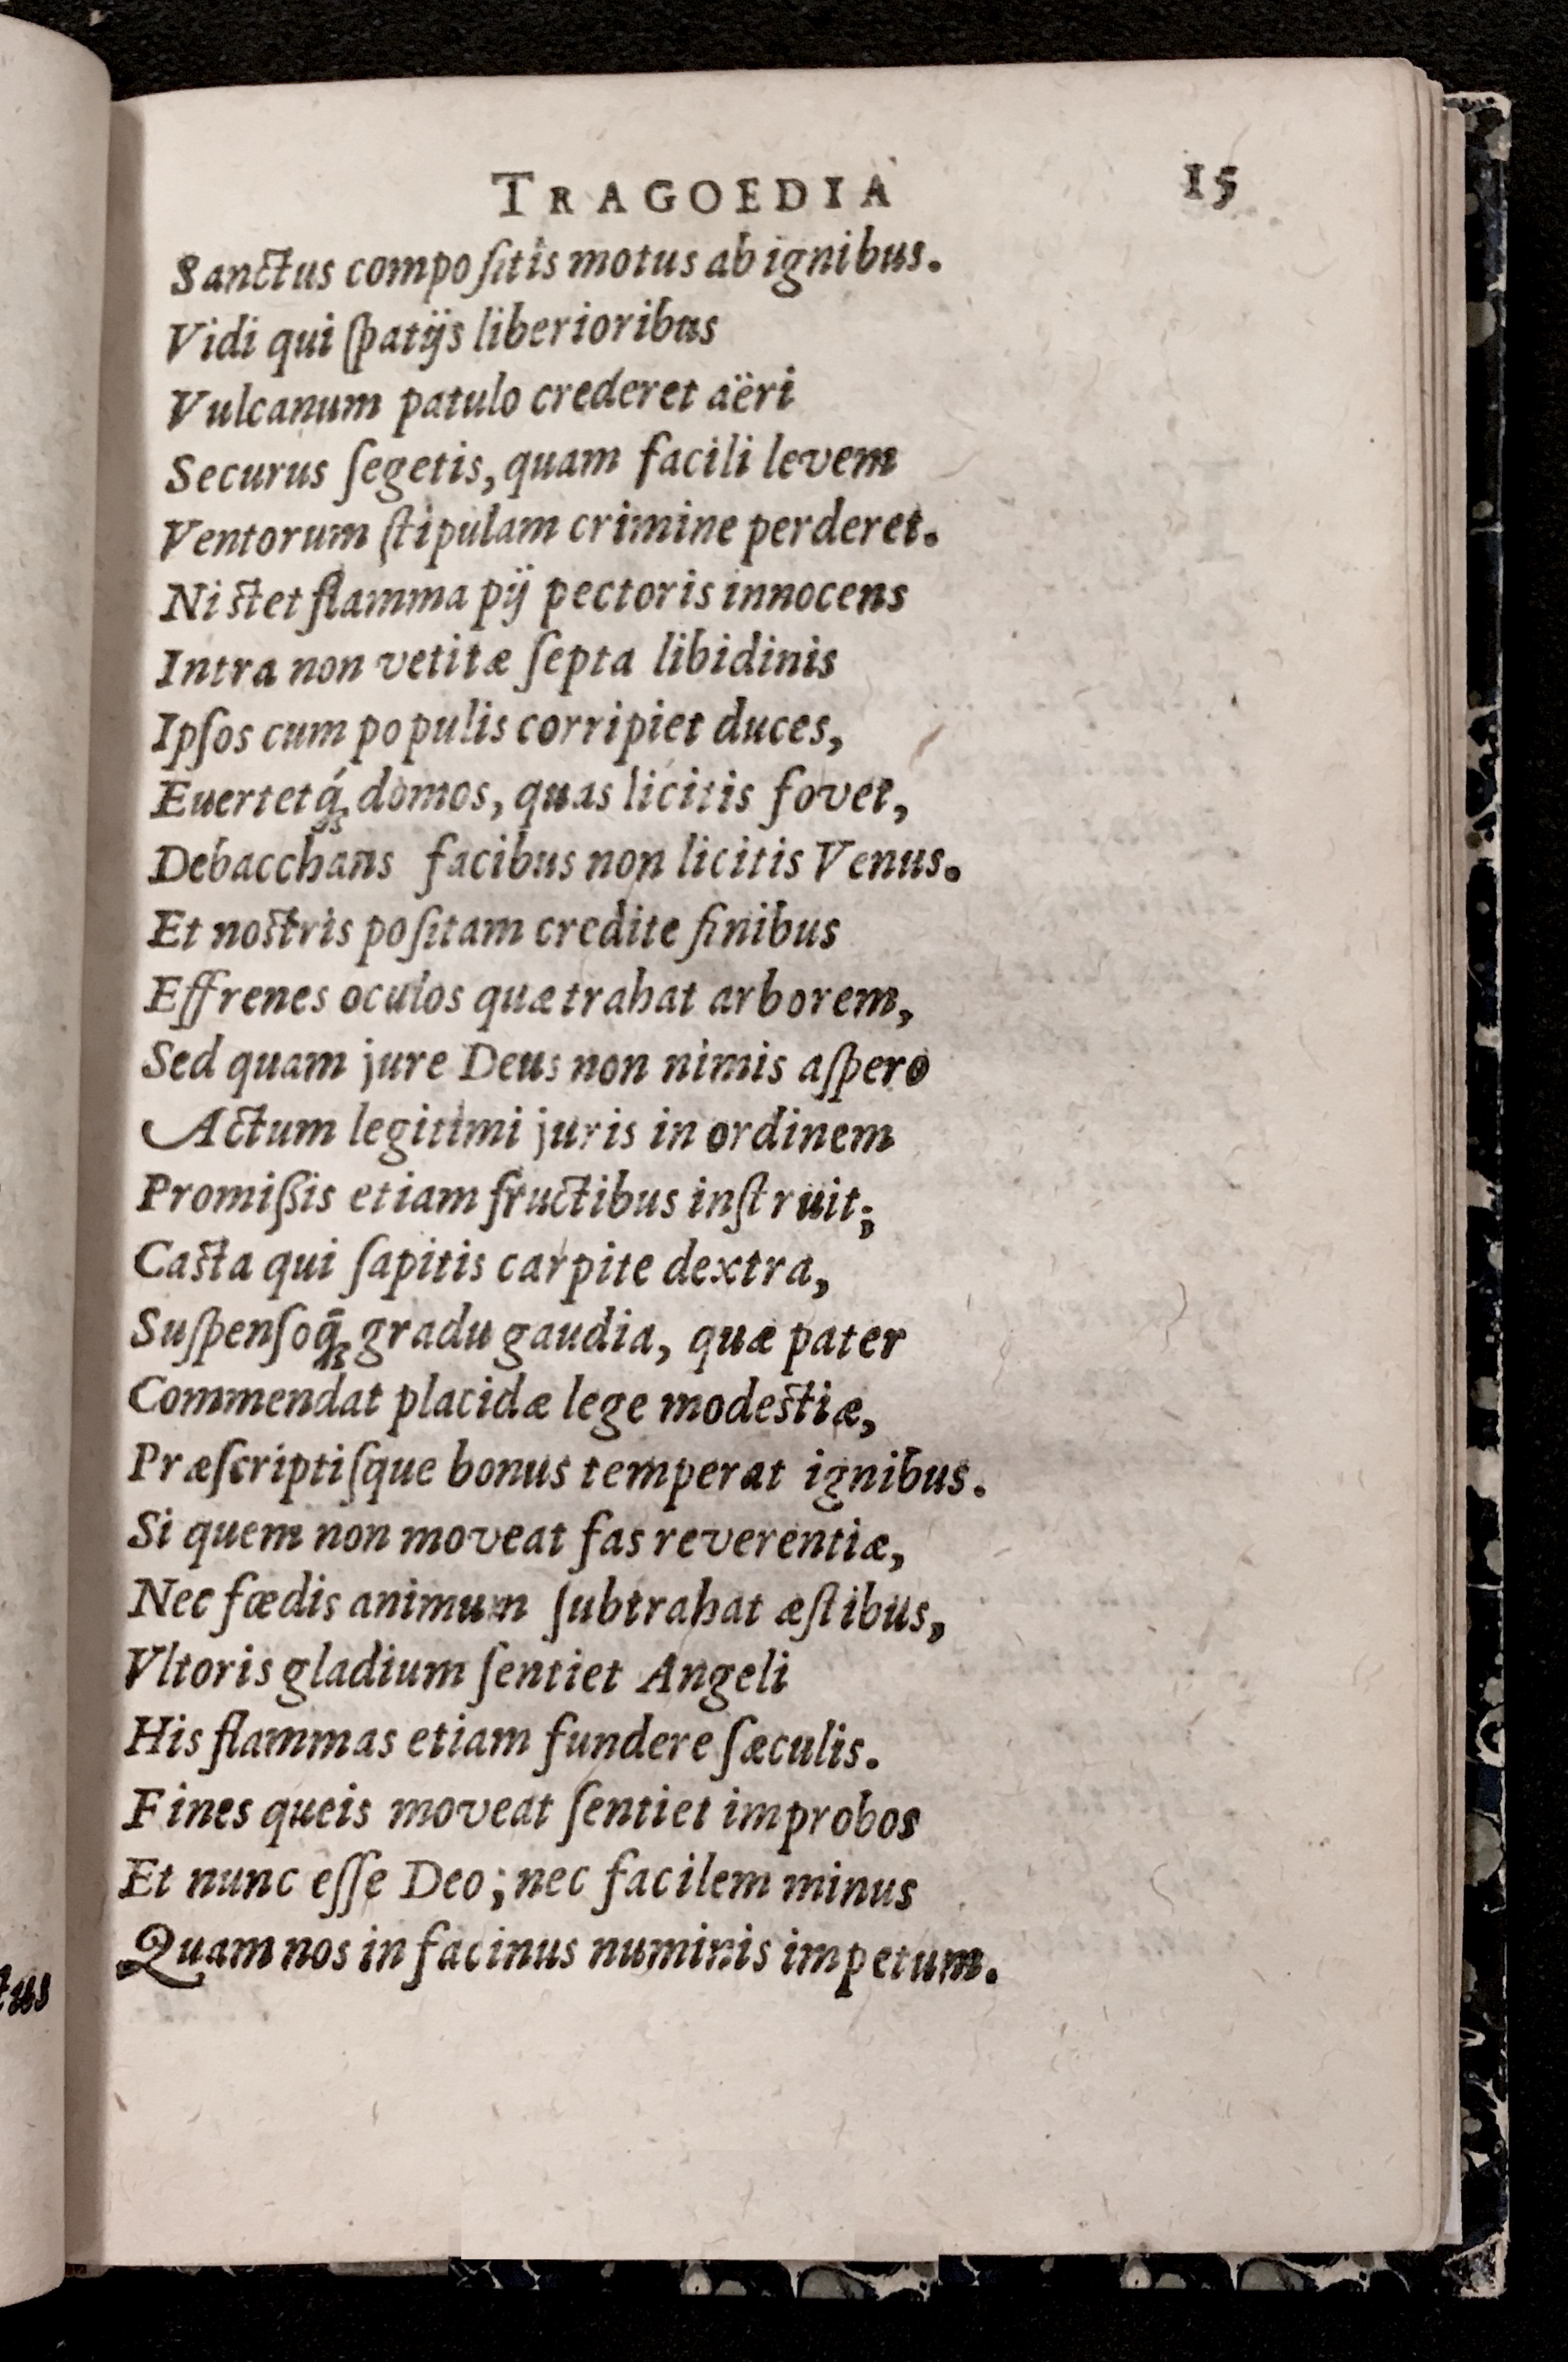 TRAGOEDIA 15
Sanctus compoſitis motus ab ignibus.
Vidi qui ſpatijs liberioribus
Vulcanum patulo crederet aëri
Securus ſegetis, quam facili levem
Ventorum ſtipulam crimine perderet.
Ni stet flamma pij pectoris innocens
Intra non vetitæ ſepta libidinis
Ipſos cum populis corripiet duces,
Euertetq́ꝫ domos, quas licitis fovet,
Debacchans facibus non licitis Venus.
Et nostris poſitam credite finibus
Effrenes oculos quæ trahat arborem,
Sed quam jure Deus non nimis aſpero
Actum legitimi juris in ordinem
Promiſsis etiam fructibus inſtruit;
Casta qui ſapitis carpite dextra,
Suſpenſoq̃ꝫ gradu gaudia, quæ pater
Commendat placidæ lege modestiæ,
Præſcriptiſque bonus temperat ignibus.
Si quem non moveat fas reverentiæ,
Nec fœdis animum ſubtrahat æſtibus,
Vltoris gladium ſentiet Angeli
His flammas etiam fundere ſæculis.
Fines queis moveat ſentiet improbos
Et nunc eſſe Deo; nec facilem minus
Quam nos in facinus numinis impetum.